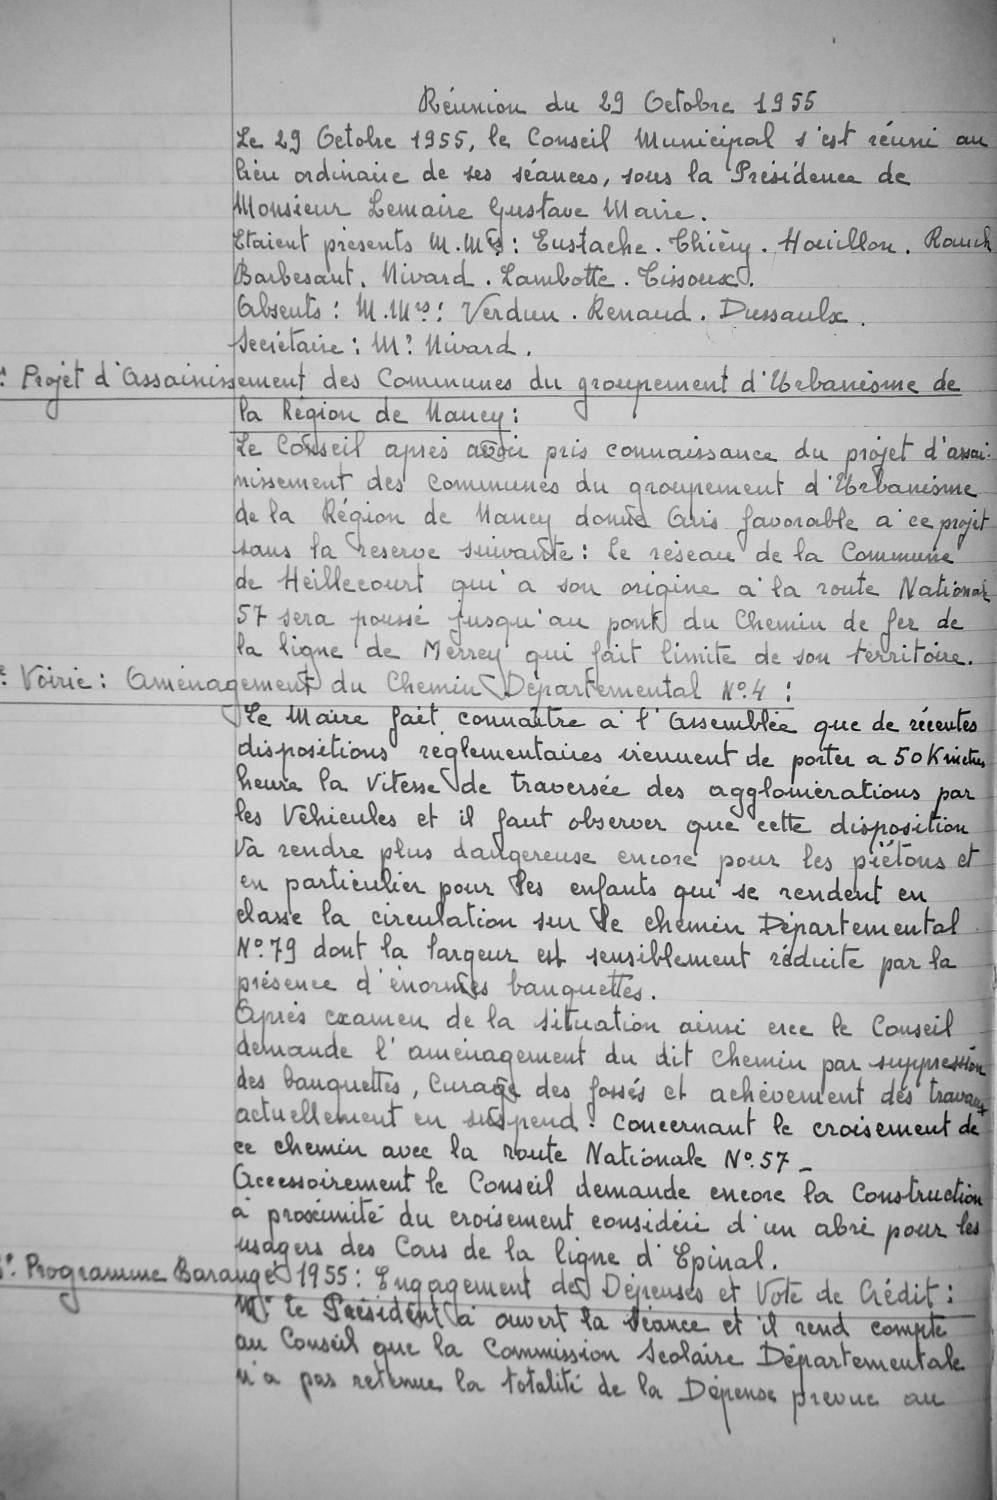 Réunion du 29 Octobre 1955
Le 29 Octobre 1955, le Conseil Municipal s'est réuni au
lieu ordinaire de ses séances, sous la Présidence de
Monsieur Lemaire Gustave Maire.
Etaient présents M.Mrs : Eustache . Thiéry . Houillon . Rauch
Barbesant . Nivard . Lambotte . Tissoux .
Absents : M.Mrs : Verdun . Renaud . Dussaulx .
Secrétaire : Mr Nivard .
Projet d'Assainissement des Communes du groupement d'Urbanisme de
la Région de Nancy :
Le Conseil après avoir pris connaissance du projet d'assai-
nissement des Communes du groupement d'Urbanisme
de la Région de Nancy donne Avis favorable à ce projet
sous la réserve suivante : Le réseau de la Commune
de Heillecourt qui a son origine à la route National
57 sera poussé jusqu'au pont du Chemin de fer de
la ligne de Merrey qui fait limite de son territoire.
Voirie : Aménagement du Chemin Départemental No.4 :
Le Maire fait connaître à l'Assemblée que de récentes
dispositions réglementaires viennent de porter a 50 Kmètres
heure la Vitesse de traversée des agglomérations par
les Véhicules et il faut observer que cette disposition
va rendre plus dangereuse encore pour les piétons et
en particulier pour les enfants qui se rendent en
classe la circulation sur le chemin Départemental
No.79 dont la largeur est sensiblement réduite par la
présence d'énormes banquettes.
Après examen de la situation ainsi cree le Conseil
demande l'aménagement du dit Chemin par suppression
des banquettes, Curage des fossés et achèvement des travaux
actuellement en suspend. Concernant le croisement de
ce chemin avec la route Nationale No.57 -
Accessoirement le Conseil demande encore la Construction
à proximité du croisement considéré d'un abri pour les
usagers des Cars de la ligne d'Epinal.
Programme Barangé 1955 : Engagement de Dépenses et Vote de Crédit :
Mr le Président a ouvert la Séance et il rend compte
au Conseil que la Commission Scolaire Départementale
n'a pas retenue la totalité de la Dépense prévue au